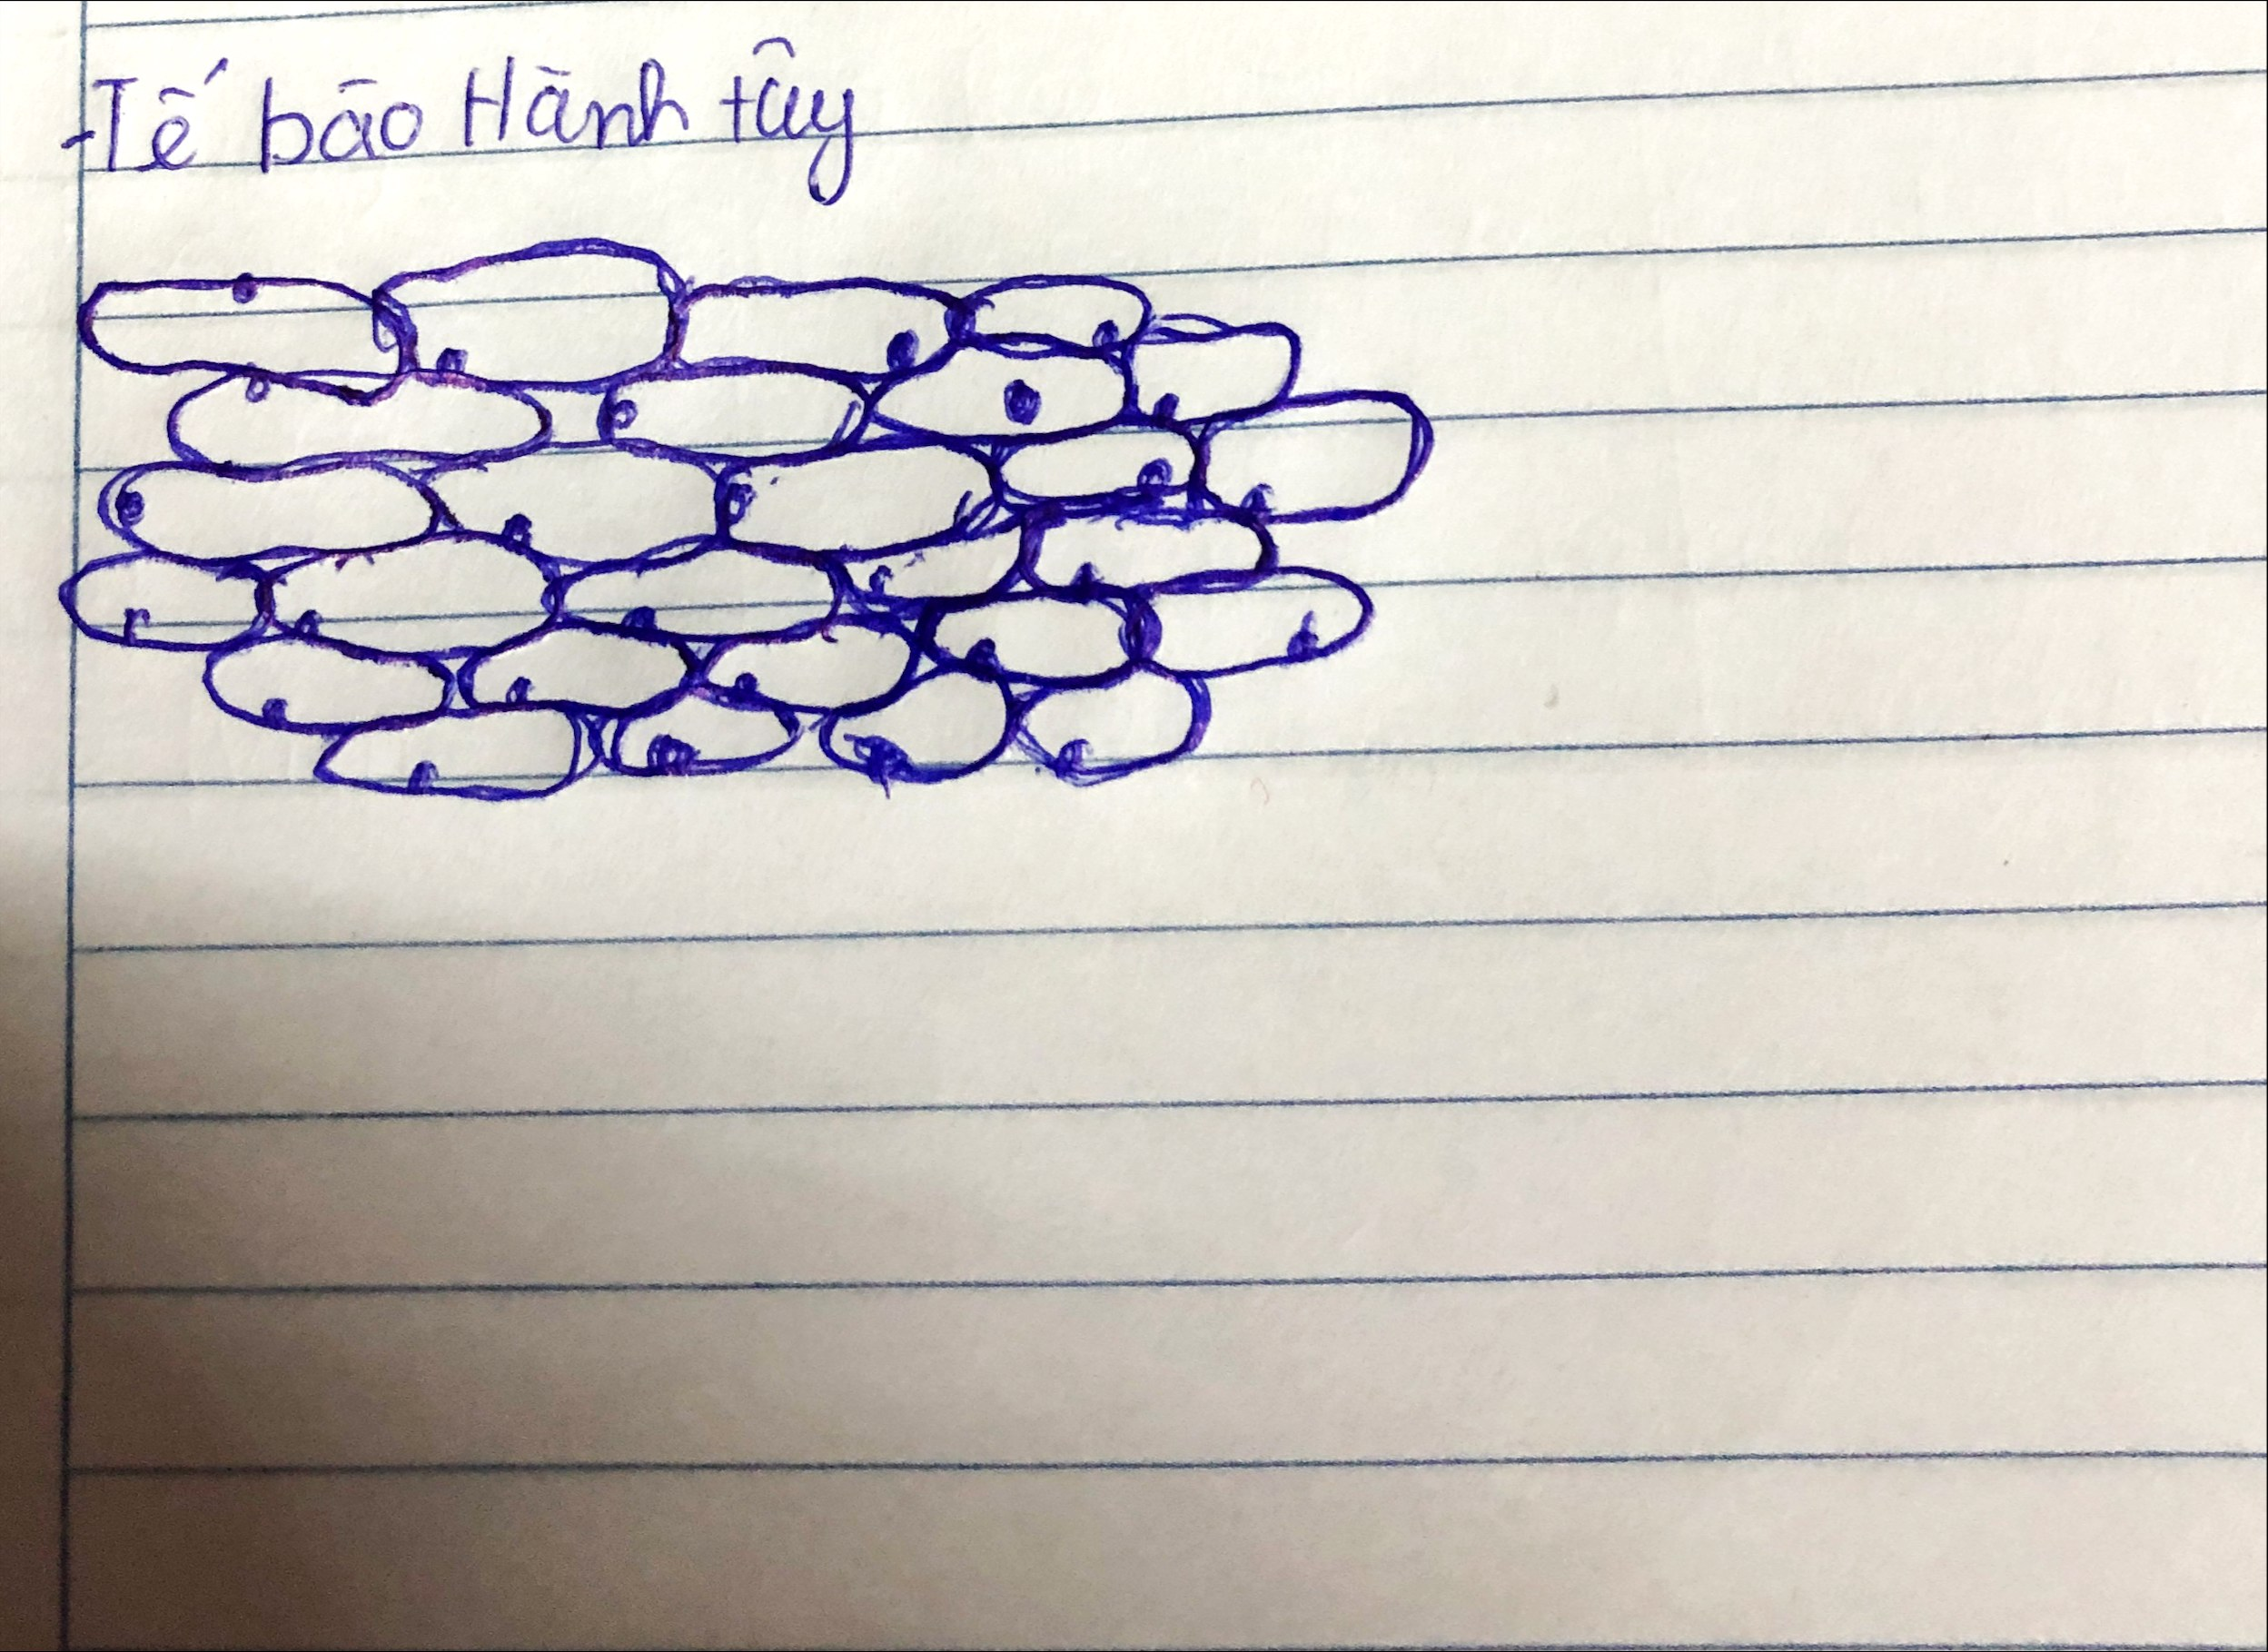 -Tế bào Hành tây